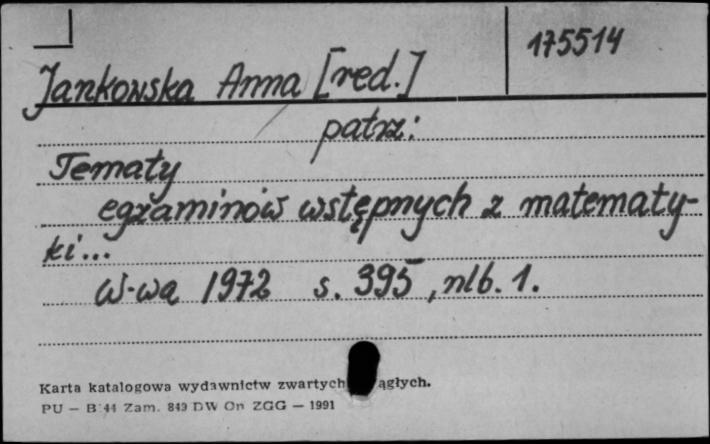 175514
Jankowska Anna [red.]
patrz:
Tematy
egzaminów wstępnych z matematy-
ki...
W-wa 1972 s. 395, nlb. 1.
Karta katalogowa wydawnictw zwartych ągłych.
PU — B 44 Zam. 849 DW On ZGG — 1991